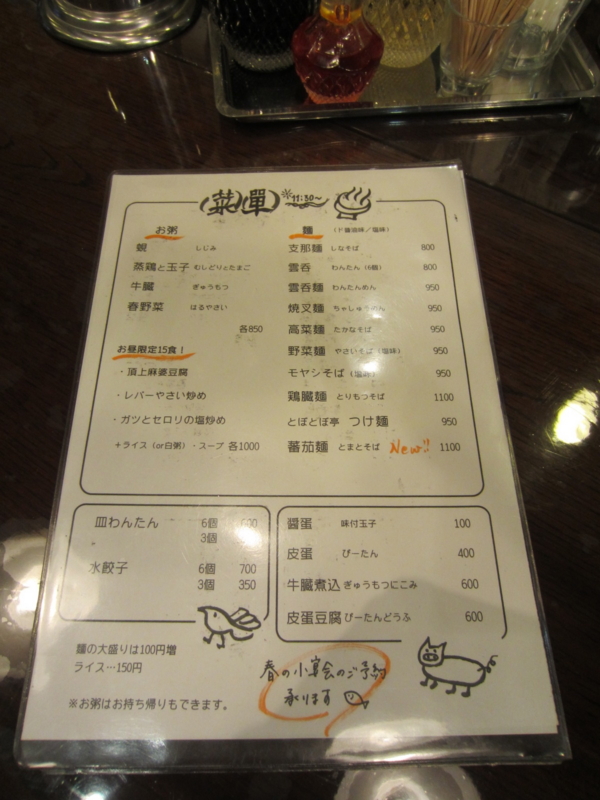 菜單 ※11:30～
お粥
蜆 しじみ
蒸鶏と玉子 むしどりとたまご
牛臓 ぎゅうもつ
春野菜 はるやさい
各850
お昼限定15食！
・頂上麻婆豆腐
・レバーやさい炒め
・ガツとセロリの塩炒め
＋ライス（or白粥）・スープ 各1000
麺
支那麺 しなそば 800
雲呑 わんたん（6個） 800
雲呑麺 わんたんめん 950
焼叉麺 ちゃしゅうめん 950
高菜麺 たかなそば 950
野菜麺 やさいそば（塩味） 950
モヤシそば（塩味） 950
鶏臓麺 とりもつそば 1100
とぼとぼ亭 つけ麺 950
蕃茄麺 とまとそば New!! 1100
皿わんたん 6個 600
3個
水餃子 6個 700
3個 350
醤蛋 味付玉子 100
皮蛋 ぴーたん 400
牛臓煮込 ぎゅうもつにこみ 600
皮蛋豆腐 ぴーたんどうふ 600
麺の大盛りは100円増
ライス…150円
※お粥はお持ち帰りもできます。
春の小宴会のご予約
承ります